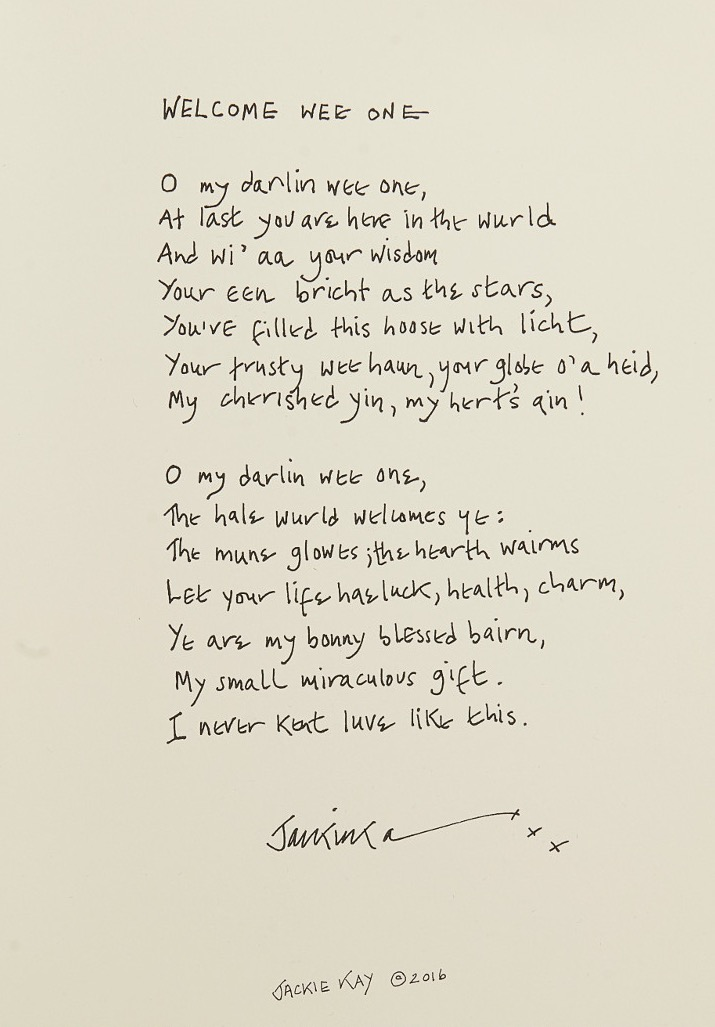 WELCOME WEE ONE
O my darlin wee one,
At last you are here in the wurld
And wi' aa your wisdom
Your een bricht as the stars,
You've filled this hoose with licht,
Your trusty wee haun, your globe o' a heid,
My cherished yin, my hert's ain!
O my darlin wee one,
The hale wurld welcomes ye:
The mune glowes; the hearth wairms
Let your life hae luck, health, charm,
Ye are my bonny blessed bairn,
My small miraculous gift.
I never kent luve like this.
x x x
JACKIE KAY © 2016